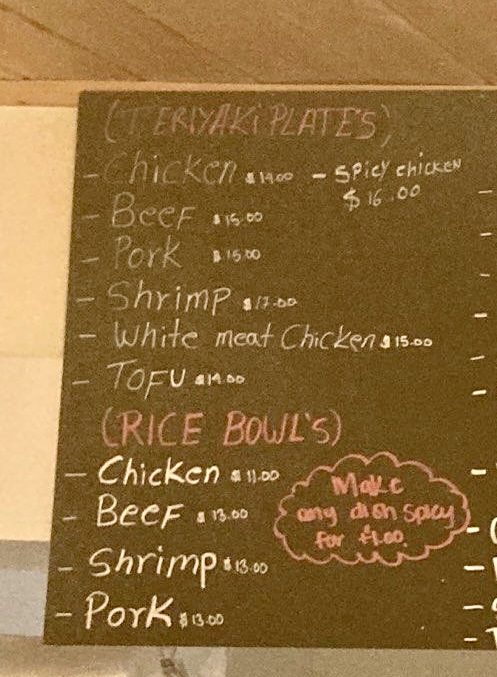 (TERIYAKI PLATE'S)
- Chicken $14.00 - SPICY chicken
$16.00
- BEEF $15.00
- Pork $15.00
- Shrimp $17.00
- White meat Chicken $15.00
- TOFU $14.00
(RICE BOWL'S)
- Chicken $11.00
- BEEF $13.00
- Shrimp $13.00
- Pork $13.00
Make
any dish spicy
For $1.00